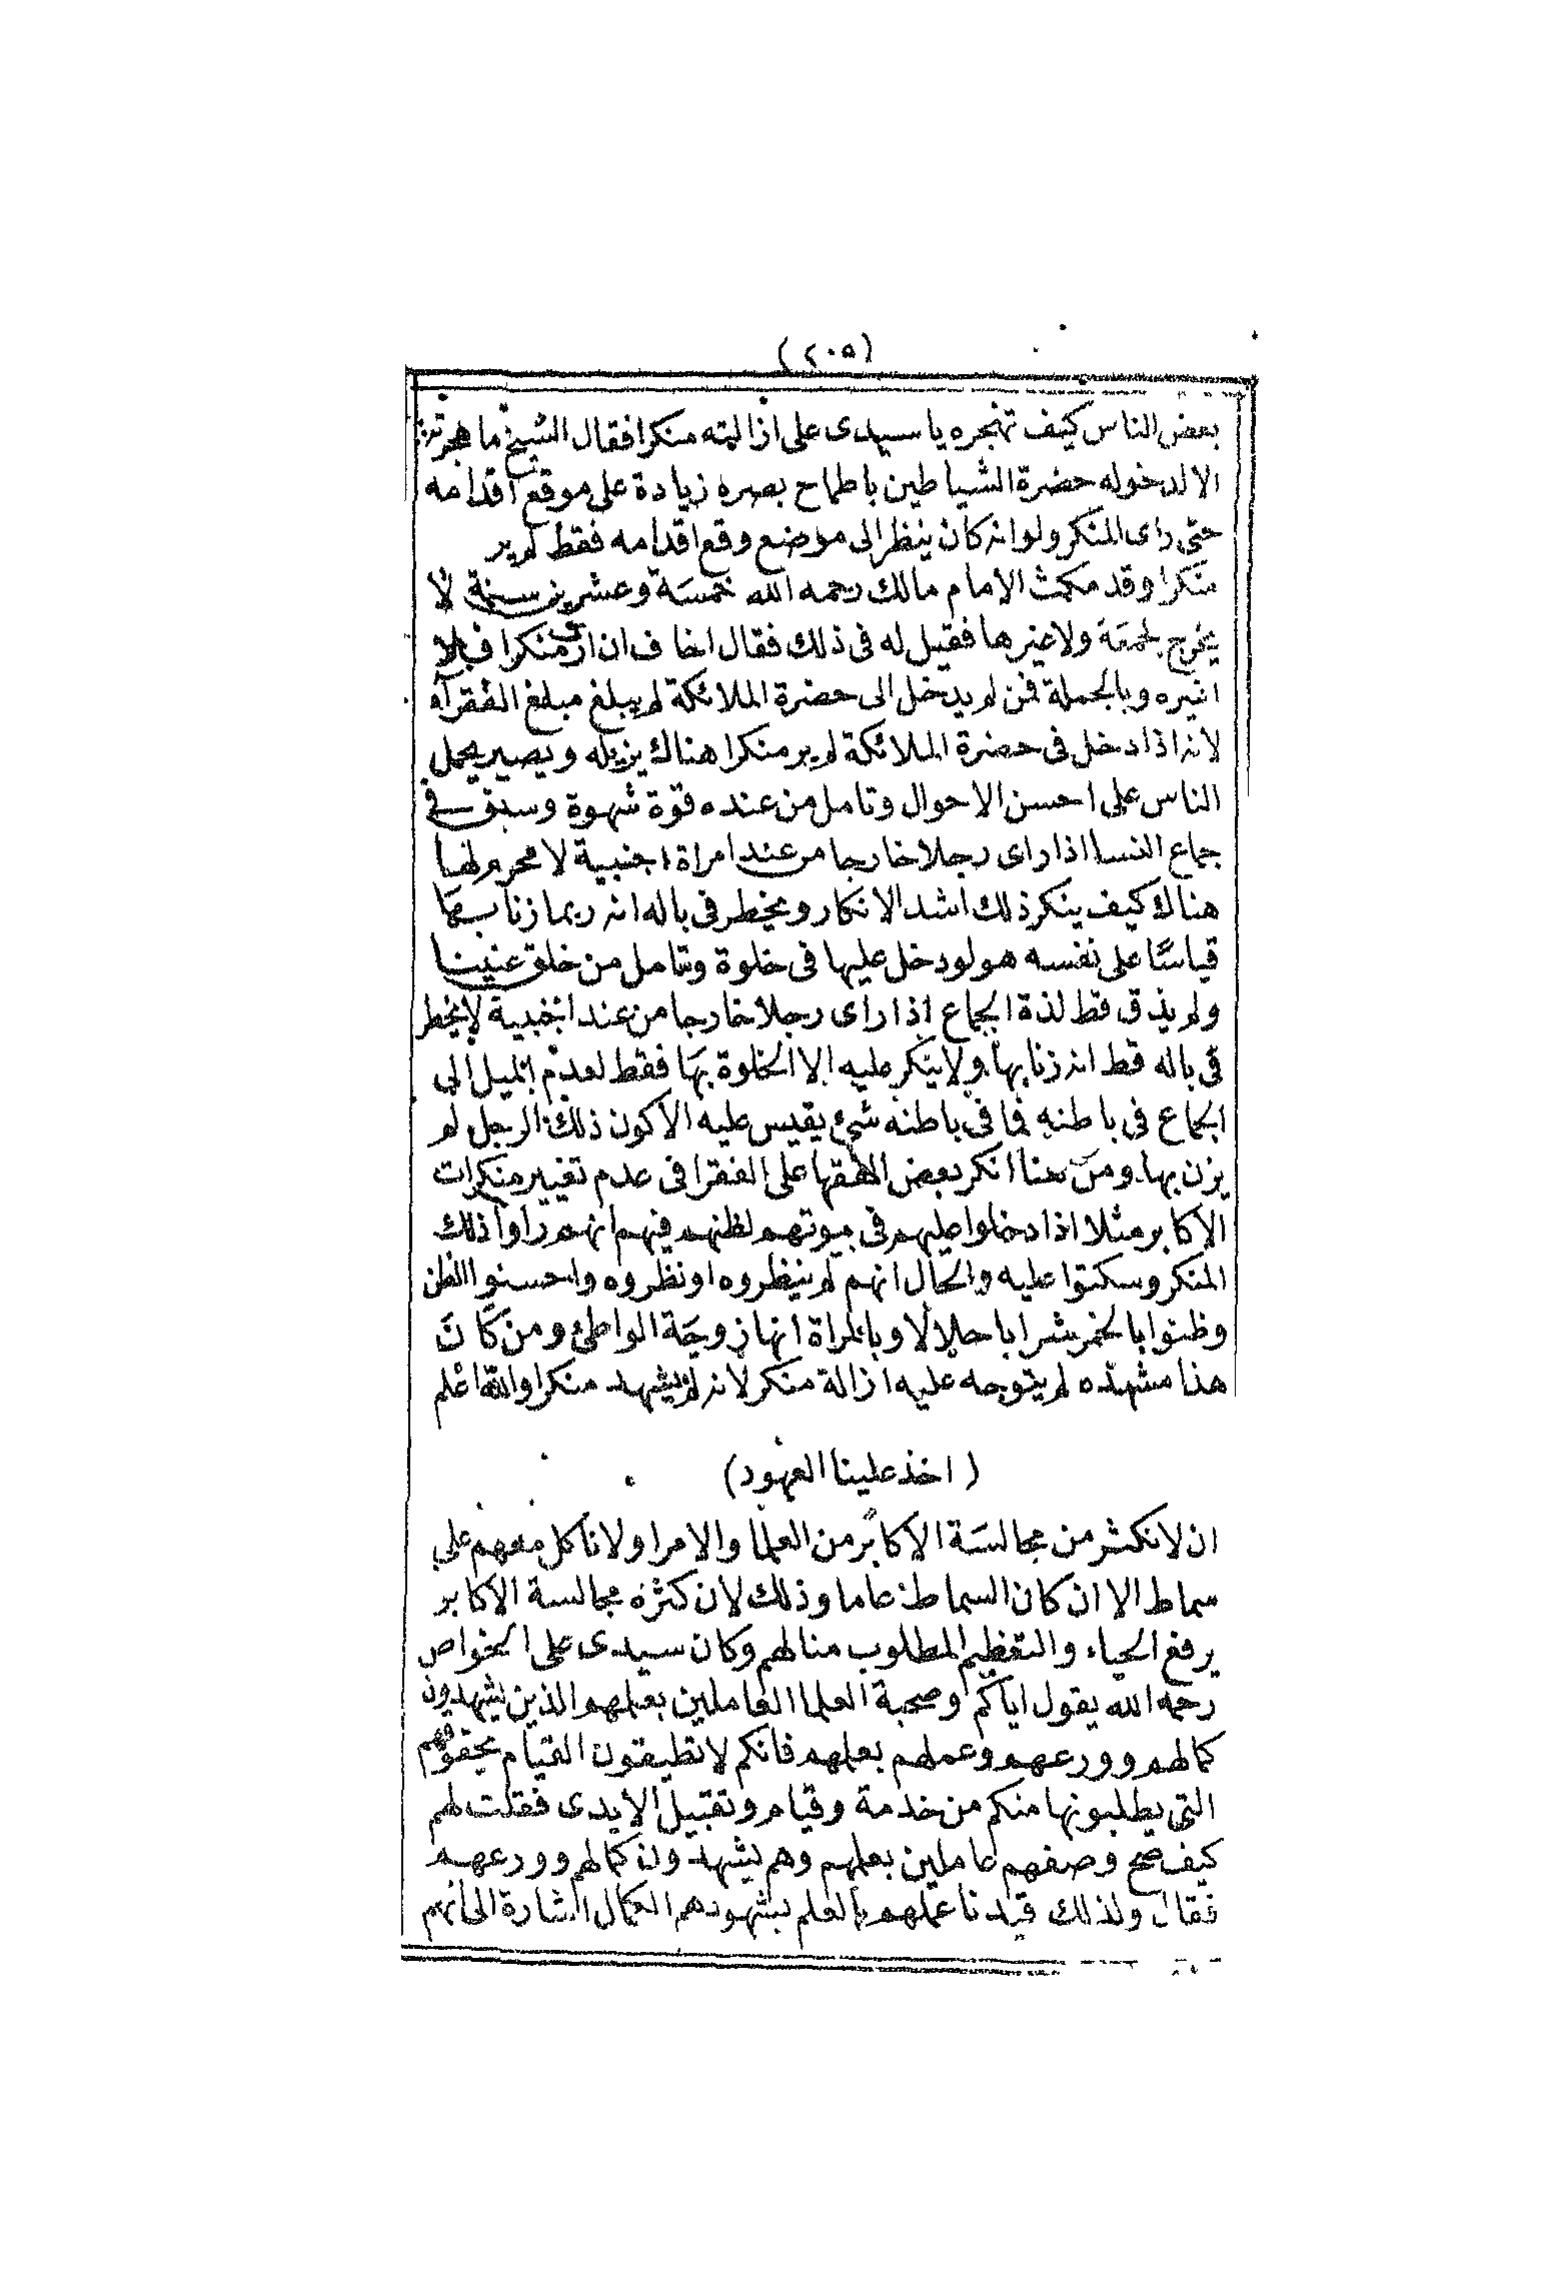 (٢٠٥)
بعض الناس كيف تهجره يا سيدى على ازالته منكرا فقال الشيخ ما هجرته
الا لدخوله حضرة الشياطين باطماح بصره زيادة على موقع اقدامه
حتى راى المنكر ولو انه كان ينظر الى موضع وقع اقدامه فقط لم ير
منكرا وقد مكث الامام مالك رحمه الله خمسة وعشرين سنة لا
يخرج لجمعة ولا غيرها فقيل له فى ذلك فقال اخاف ان ارى منكرا فلا
اغيره وبالجملة فمن لم يدخل الى حضرة الملائكة لم يبلغ مبلغ الفقرآء
لانه اذا دخل فى حضرة الملائكة لم ير منكرا هناك يزيله ويصير يحمل
الناس على احسن الاحوال وتامل من عنده قوة شهوة وسبق فى
جماع النسا اذا راى رجلا خارجا من عند امراة اجنبية لا محرم لها
هناك كيف ينكر ذلك اشد الانكار ويخطر فى باله انه ربما زنا بها
قياسًا على نفسه هو لو دخل عليها فى خلوة وتامل من خلق عنينا
ولم يذق قط لذة الجماع اذا راى رجلا خارجا من عند اجنبية لا يخطر
فى باله قط انه زنا بها ولا ينكر عليه الا الخلوة بها فقط لعدم الميل الى
الجماع فى باطنه فما فى باطنه شئ يقيس عليه الا كون ذلك الرجل لم
يزن بها ومن هنا انكر بعض الفقها على الفقرا فى عدم تغيير منكرات
الاكابر مثلا اذا دخلوا عليهم فى بيوتهم لظنهم فيهم انهم راوا ذلك
المنكر وسكتوا عليه والحال انهم لم ينظروه او نظروه واحسنوا الظن
وظنوا بالخمر شرابا حلالا وبالمراة انها زوجة الواطئ ومن كان
هذا مشهده لم يتوجه عليه ازالة منكر لانه لم يشهد منكرا والله اعلم
(اخذ علينا العهود)
ان لا نكثر من مجالسة الاكابر من العلما والامرا ولا ناكل معهم على
سماط الا ان كان السماط عاما وذلك لان كثرة مجالسة الاكابر
يرفع الحياء والتعظيم المطلوب منا لهم وكان سيدى على الخواص
رحمه الله يقول اياكم وصحبة العلما العاملين بعلمهم الذين يشهدون
كمالهم وورعهم وعملهم بعلمهم فانكم لا تطيقون القيام بحقوقهم
التى يطلبونها منكم من خدمة وقيام وتقبيل الايدى فقلت لهم
كيف صح وصفهم عاملين بعلمهم وهم يشهدون كمالهم وورعهم
فقال ولذلك قيدنا عملهم بالعلم بشهودهم الكمال اشارة الى انهم